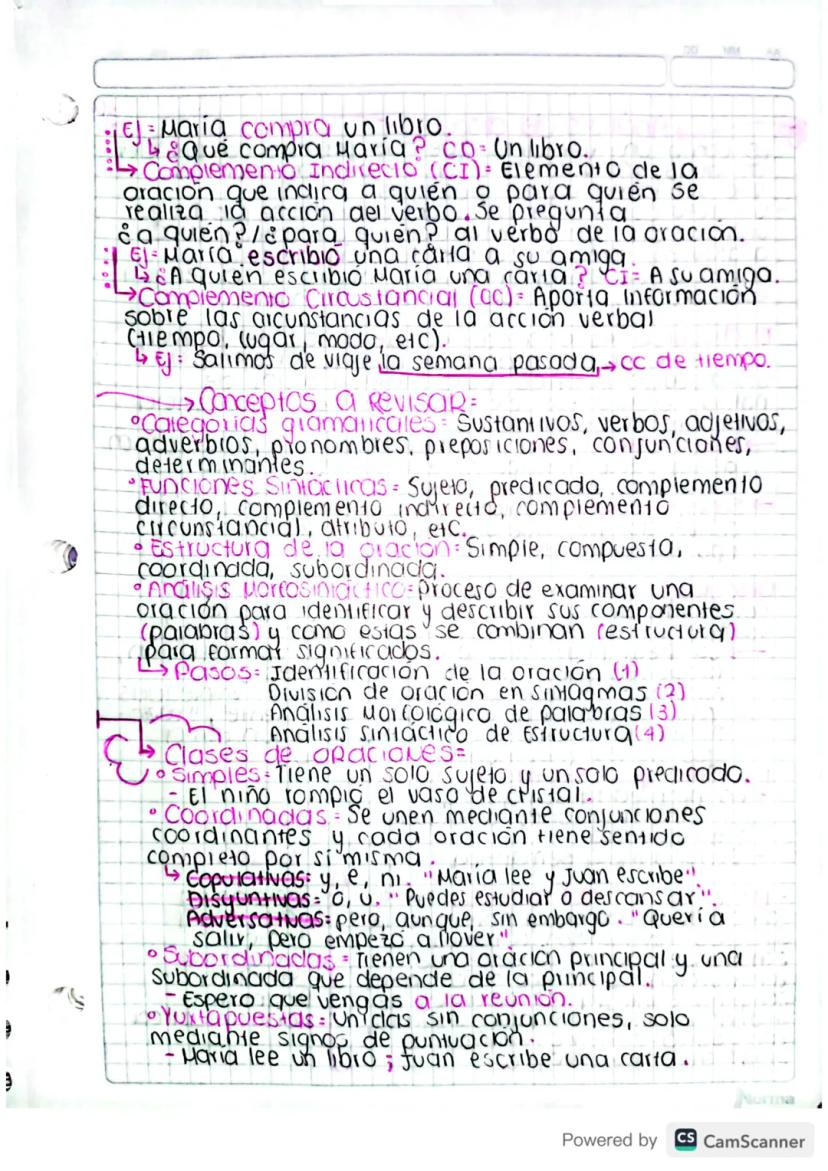 DD MM AA
EJ = María compra un libro.
↳ ¿Qué compra María? CD = Un libro.
→ Complemento Indirecto (CI) = Elemento de la
oración que indica a quién o para quién se
realiza la acción del verbo. Se pregunta
¿a quién?/¿para quién? al verbo de la oración.
EJ = María escribió una carta a su amiga.
↳ ¿A quién escribió María una carta? CI = A su amiga.
→ Complemento Circustancial (CC) = Aporta información
sobre las circunstancias de la acción verbal
(tiempo, lugar, modo, etc).
↳ EJ = Salimos de viaje la semana pasada → CC de tiempo.
→ Conceptos a revisar =
° Categorias gramaticales = Sustantivos, verbos, adjetivos,
adverbios, pronombres, preposiciones, conjunciones,
determinantes.
° Funciones Sintácticas = Sujeto, predicado, complemento
directo, complemento indirecto, complemento
circunstancial, atributo, etc.
° Estructura de la oración = Simple, compuesta,
coordinada, subordinada.
° Análisis Morfosintáctico = proceso de examinar una
oración para identificar y describir sus componentes
(palabras) y como estas se combinan (estructura)
para formar significados.
↳ Pasos = Identificación de la oración (1)
División de oración en sintagmas (2)
Análisis Morfológico de palabras (3)
Análisis sintáctico de Estructura (4)
→ Clases de oraciones =
° Simples = Tiene un solo sujeto y un solo predicado.
- El niño rompió el vaso de cristal.
° Coordinadas = Se unen mediante conjunciones
coordinantes y cada oración tiene sentido
completo por sí misma.
↳ Copulativas = y, e, ni. "María lee y Juan escribe".
Disyuntivas = o, u. "Puedes estudiar o descansar".
Adversativas = pero, aunque, sin embargo. "Quería
salir, pero empezó a llover".
° Subordinadas = Tienen una oración principal y una
subordinada que depende de la principal.
- Espero que vengas a la reunión.
° Yuxtapuestas = Unidas sin conjunciones, solo
mediante signos de puntuación.
- María lee un libro ; Juan escribe una carta.
Norma
Powered by CS CamScanner